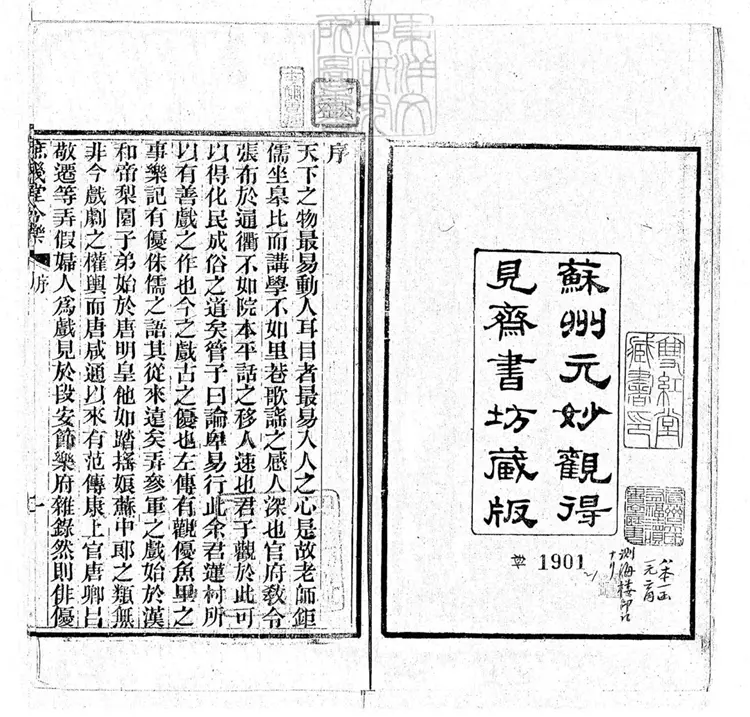 蘇州元妙觀得
見齋書坊藏版
雙紅堂
藏書印
1901
序
天下之物最易動人耳目者最易入人之心是故老師鉅
儒坐皋比而講學不如里巷歌謠之感人深也官府教令
張布於通衢不如院本平話之移人速也君子觀於此可
以得化民成俗之道矣管子曰論卑易行此余君蓮村所
以有善戲之作也今之戲古之優也左傳有觀優魚里之
事樂記有優侏儒之語其從來遠矣弄參軍之戲始於漢
和帝梨園子弟始於唐明皇他如踏搖娘蘇中郎之類無
非今戲劇之權輿而唐咸通以來有范傳康上官唐卿呂
敬遷等弄假婦人爲戲見於段安節樂府雜錄然則俳優
庶幾堂今樂 序 一